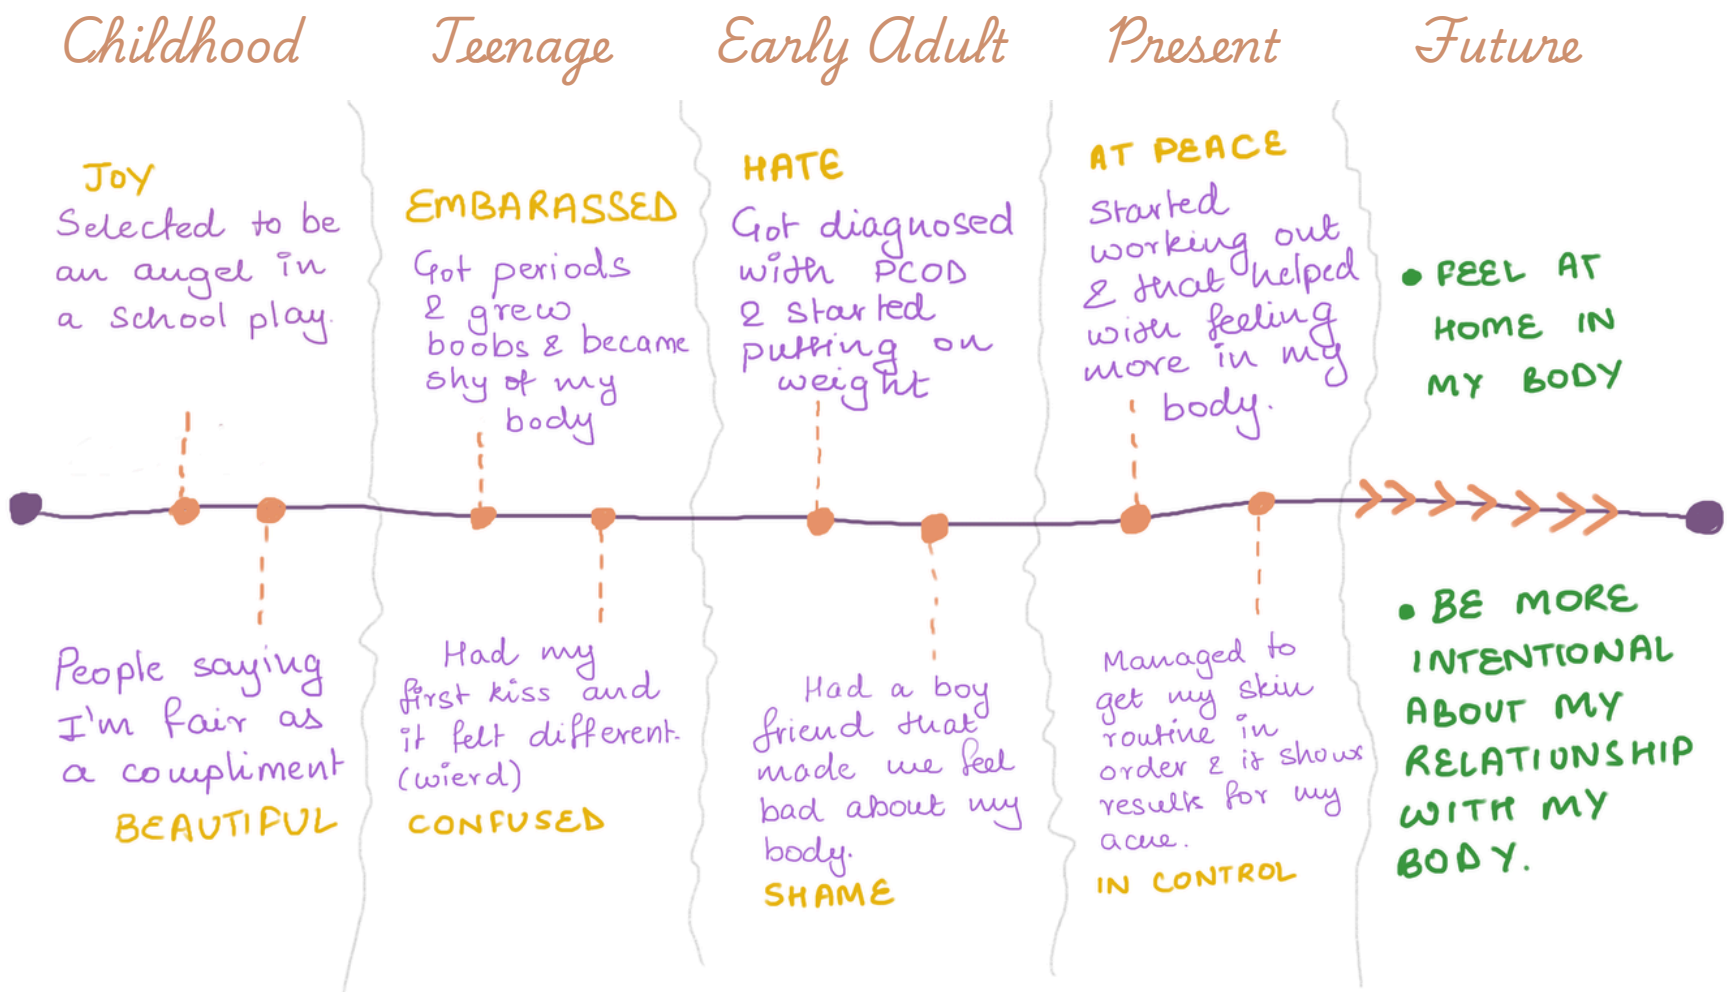 Childhood
Teenage
Early Adult
Present
Future
JOY
Selected to be
an angel in
a school play.
People saying
I'm fair as
a compliment
BEAUTIFUL
EMBARASSED
Got periods
& grew
boobs & became
shy of my
body
Had my
first kiss and
it felt different.
(wierd)
CONFUSED
HATE
Got diagnosed
with PCOD
& started
putting on
weight
Had a boy
friend that
made me feel
bad about my
body.
SHAME
AT PEACE
Started
working out
& that helped
with feeling
more in my
body.
Managed to
get my skin
routine in
order & it shows
results for my
acne.
IN CONTROL
• FEEL AT
HOME IN
MY BODY
• BE MORE
INTENTIONAL
ABOUT MY
RELATIONSHIP
WITH MY
BODY.